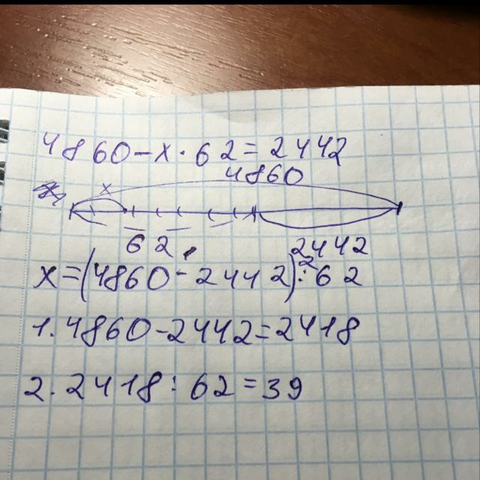 4860-x·62=2442
4860
x
62
2442
1 2
x=(4860-2442):62
1.4860-2442=2418
2.2418:62=39